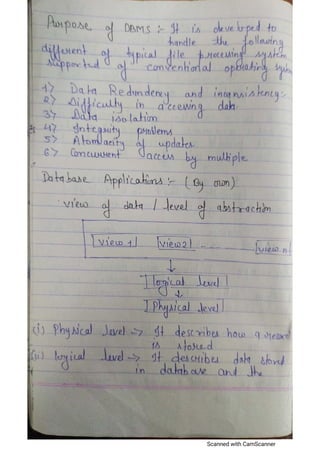 Purpose of DBMS :- It is developed to
handle the following
different of typical file processing system
supported of conventional operating system
1) Data Redundency and inconsistency:-
2) Difficulty in accessing data
3) Data isolation
4) Integrity problems
5) Atomacity of updates
6) Concurrent access by multiple
Database Applications :- (By own)
view of data / level of abstraction
view 1 view 2 ------ view n
logical level
Physical level
(i) Physical level => It describes how a record
is stored
(ii) logical level -> It describes data stored
in database and the
Scanned with CamScanner